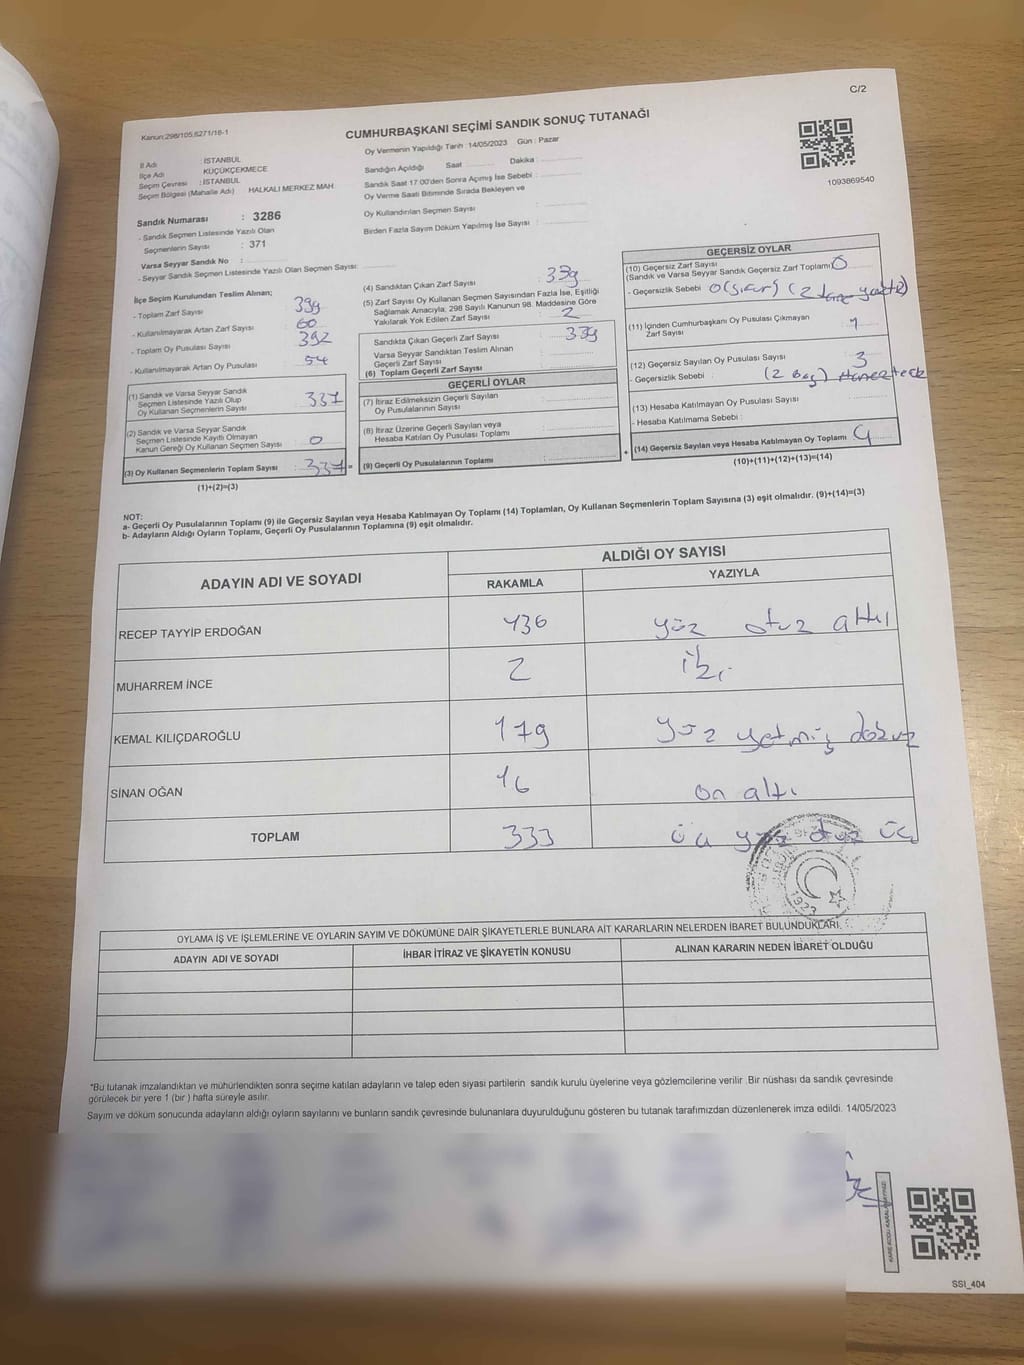 C/2
Kanun:298/105,6271/16-1
CUMHURBAŞKANI SEÇİMİ SANDIK SONUÇ TUTANAĞI
Oy Vermenin Yapıldığı Tarih :14/05/2023 Gün : Pazar
İl Adı : İSTANBUL
İlçe Adı KÜÇÜKÇEKMECE
Seçim Çevresi : İSTANBUL
Seçim Bölgesi (Mahalle Adı) HALKALI MERKEZ MAH.
Sandık Numarası : 3286
- Sandık Seçmen Listesinde Yazılı Olan
Seçmenlerin Sayısı : 371
Varsa Seyyar Sandık No :
- Seyyar Sandık Seçmen Listesinde Yazılı Olan Seçmen Sayısı:
Sandığın Açıldığı Saat Dakika :
Sandık Saat 17:00'den Sonra Açılmış İse Sebebi :
Oy Verme Saati Bitiminde Sırada Bekleyen ve
Oy Kullandırılan Seçmen Sayısı :
Birden Fazla Sayım Döküm Yapılmış İse Sayısı :
1093869540
İlçe Seçim Kurulundan Teslim Alınan;
- Toplam Zarf Sayısı : 399
- Kullanılmayarak Artan Zarf Sayısı : 60
- Toplam Oy Pusulası Sayısı : 392
- Kullanılmayarak Artan Oy Pusulası : 54
(1) Sandık ve Varsa Seyyar Sandık
Seçmen Listesinde Yazılı Olup
Oy Kullanan Seçmenlerin Sayısı : 337
(2) Sandık ve Varsa Seyyar Sandık
Seçmen Listesinde Kayıtlı Olmayan
Kanun Gereği Oy Kullanan Seçmen Sayısı : 0
(3) Oy Kullanan Seçmenlerin Toplam Sayısı : 337=
(1)+(2)=(3)
(4) Sandıktan Çıkan Zarf Sayısı : 339
(5) Zarf Sayısı Oy Kullanan Seçmen Sayısından Fazla İse, Eşitliği
Sağlamak Amacıyla; 298 Sayılı Kanunun 98. Maddesine Göre
Yakılarak Yok Edilen Zarf Sayısı : 2
Sandıkta Çıkan Geçerli Zarf Sayısı : 339
Varsa Seyyar Sandıktan Teslim Alınan
Geçerli Zarf Sayısı :
(6) Toplam Geçerli Zarf Sayısı :
GEÇERLİ OYLAR
(7) İtiraz Edilmeksizin Geçerli Sayılan
Oy Pusulalarının Sayısı :
(8) İtiraz Üzerine Geçerli Sayılan veya
Hesaba Katılan Oy Pusulası Toplamı :
(9) Geçerli Oy Pusulalarının Toplamı : +
GEÇERSİZ OYLAR
(10) Geçersiz Zarf Sayısı
(Sandık ve Varsa Seyyar Sandık Geçersiz Zarf Toplamı) 0
- Geçersizlik Sebebi 0(sıfır) (2 tane
(11) İçinden Cumhurbaşkanı Oy Pusulası Çıkmayan
Zarf Sayısı : 1
(12) Geçersiz Sayılan Oy Pusulası Sayısı : 3
- Geçersizlik Sebebi : (2 boş)
(13) Hesaba Katılmayan Oy Pusulası Sayısı :
- Hesaba Katılmama Sebebi :
(14) Geçersiz Sayılan veya Hesaba Katılmayan Oy Toplamı :
(10)+(11)+(12)+(13)=(14)
NOT:
a- Geçerli Oy Pusulalarının Toplamı (9) ile Geçersiz Sayılan veya Hesaba Katılmayan Oy Toplamı (14) Toplamları, Oy Kullanan Seçmenlerin Toplam Sayısına (3) eşit olmalıdır. (9)+(14)=(3)
b- Adayların Aldığı Oyların Toplamı, Geçerli Oy Pusulalarının Toplamına (9) eşit olmalıdır.
ADAYIN ADI VE SOYADI
ALDIĞI OY SAYISI
RAKAMLA YAZIYLA
RECEP TAYYİP ERDOĞAN 136 yüz otuz altı
MUHARREM İNCE 2 iki
KEMAL KILIÇDAROĞLU 179 yüz yetmiş dokuz
SİNAN OĞAN 16 on altı
TOPLAM 333 üç yüz otuz üç
1923
OYLAMA İŞ VE İŞLEMLERİNE VE OYLARIN SAYIM VE DÖKÜMÜNE DAİR ŞİKAYETLERLE BUNLARA AİT KARARLARIN NELERDEN İBARET BULUNDUKLARI.
ADAYIN ADI VE SOYADI İHBAR İTİRAZ VE ŞİKAYETİN KONUSU ALINAN KARARIN NEDEN İBARET OLDUĞU
*Bu tutanak imzalandıktan ve mühürlendikten sonra seçime katılan adayların ve talep eden siyasi partilerin sandık kurulu üyelerine veya gözlemcilerine verilir .Bir nüshası da sandık çevresinde
görülecek bir yere 1 (bir ) hafta süreyle asılır.
Sayım ve döküm sonucunda adayların aldığı oyların sayılarını ve bunların sandık çevresinde bulunanlara duyurulduğunu gösteren bu tutanak tarafımızdan düzenlenerek imza edildi. 14/05/2023
KARE KODU KARALAMAYINIZ!
SSI_404